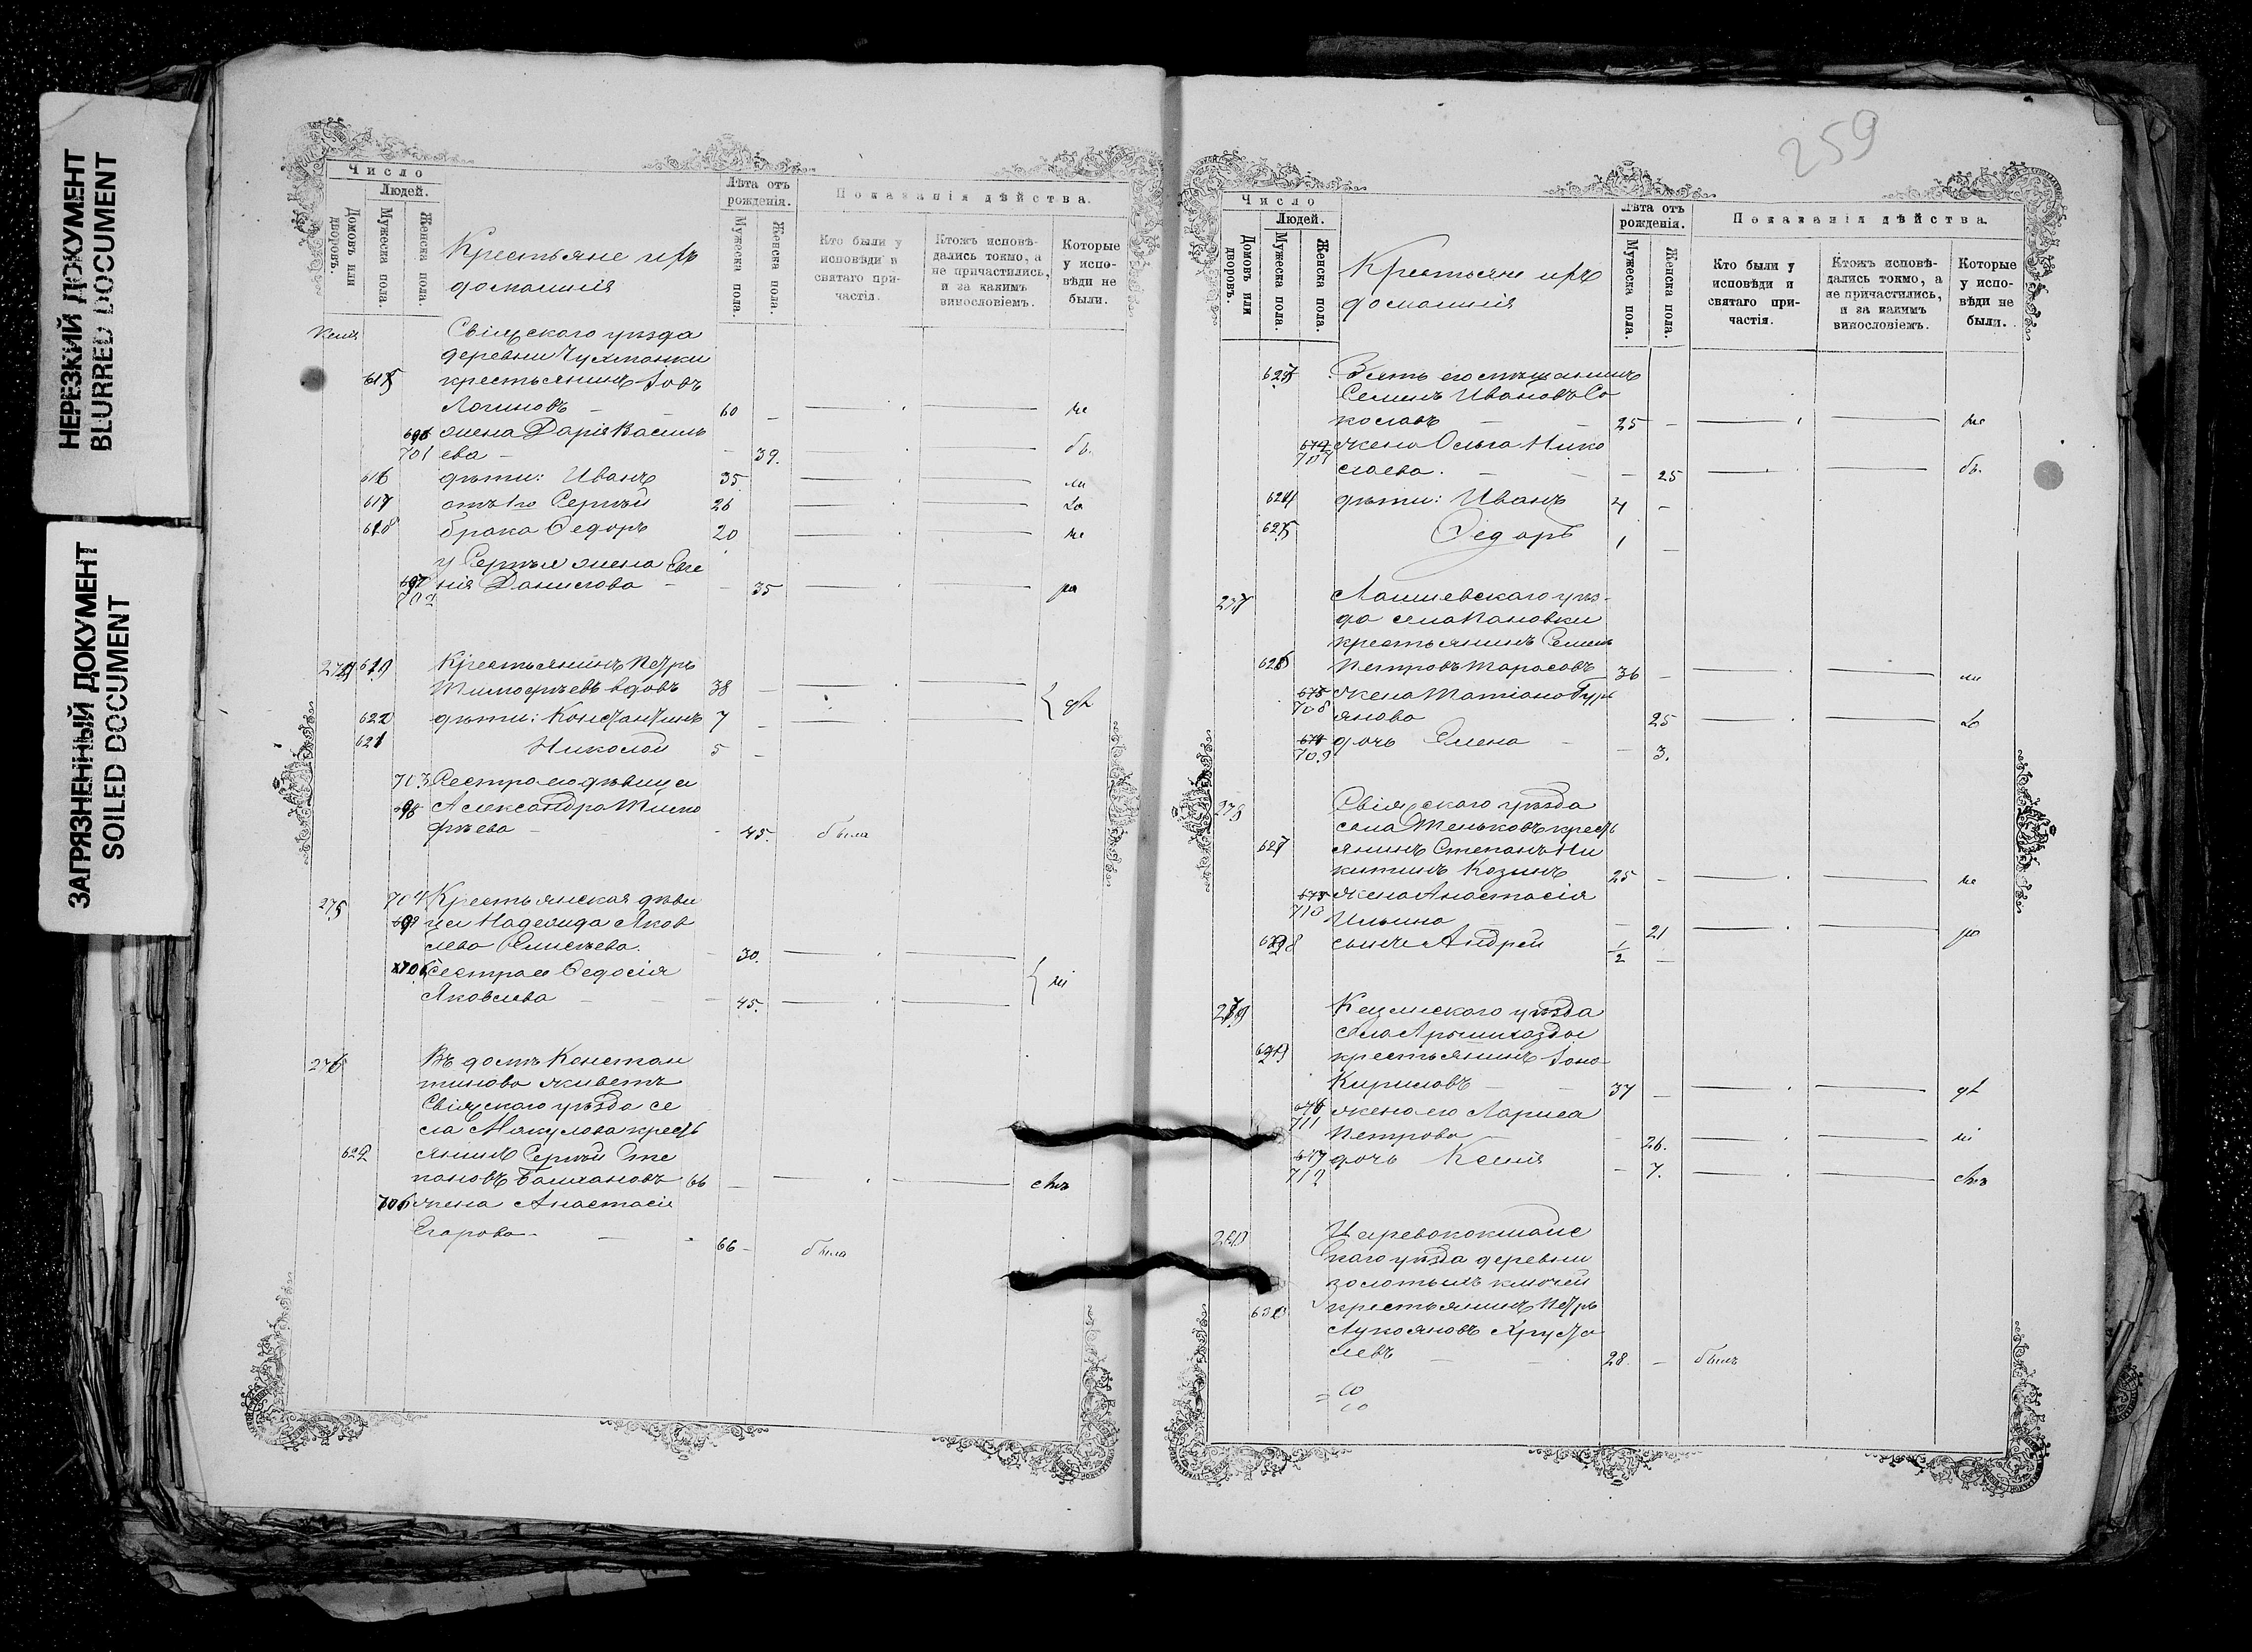 НЕРЕЗКИЙ ДОКУМЕНТ
BLURRED DOCUMENT
ЗАГРЯЗНЕННЫЙ ДОКУМЕНТ
SOILED DOCUMENT
Число
Людей.
Домовъ или дворовъ.
Мужеска пола.
Женска пола.
Крестьяне ихъ
домашнія
Лѣта отъ рожденія.
Мужеска пола.
Женска пола.
Показанія дѣйства.
Кто были у исповѣди и святаго причастія.
Ктожъ исповѣдались токмо, а не причастились, и за какимъ винословіемъ.
Которые у исповѣди не были.
Свіяжскаго уѣзда
деревни
615 крестьянинъ Іовъ
Логиновъ 60 не
жена Дарія Василь
701 ева 39. бы
616 дѣти: Иванъ 35 ли
617 отъ 1го Сергѣй 26
618 брака Ѳедоръ 20 не
у Сергѣя жена Евге
702 нія Данилова 35
274 619 Крестьянинъ Петръ
Тимофѣевъ вдовъ 38
620 дѣти: Константинъ 7
621 Николай 5
703 Сестра его дѣвица
Александра Тимо
фѣева 45. была
275 704 Крестьянская дѣви
ца Надежда Яков
лева Елисѣева. 30.
705 Сестра ея Ѳедосія
Яковлева 45.
276 Въ домѣ Констан
тинова живетъ
Свіяжскаго уѣзда се
ла Макулова крест
622 янинъ Сергѣй Сте
пановъ 66
706 жена Анастасія
Егорова 66 была
259
Число
Людей.
Домовъ или дворовъ.
Мужеска пола.
Женска пола.
Крестьяне ихъ
домашнія
Лѣта отъ рожденія.
Мужеска пола.
Женска пола.
Показанія дѣйства.
Кто были у исповѣди и святаго причастія.
Ктожъ исповѣдались токмо, а не причастились, и за какимъ винословіемъ.
Которые у исповѣди не были.
623 Зять его мѣщанинъ
Семенъ Ивановъ Со
коловъ 25 не
707 жена Ольга Нико
лаева. 25 бы
624 дѣти: Иванъ 4
625 Ѳедоръ 1
277 Лаишевскаго уѣз-
да села Пановки
крестьянинъ Семенъ
626 Петровъ Тарасовъ 36 ли
жена Татіана
708 янова 25
709 дочь Елена 3.
278 Свіяжскаго уѣзда
села Теньковъ крест
627 янинъ Степанъ Ни
китинъ Козинъ 25 не
жена Анастасія
710 Ильина 21
628 сынъ Андрей 1/2
279 Казанскаго уѣзда
села
629 крестьянинъ Іона
Кириловъ 37
жена его Лариса
711 Петрова 26.
712 дочь Ксенія 7.
280 Царевококшайс
каго уѣзда деревни
золотыхъ ключей
630 крестьянинъ Петръ
Лукояновъ Хруста
левъ 28. былъ